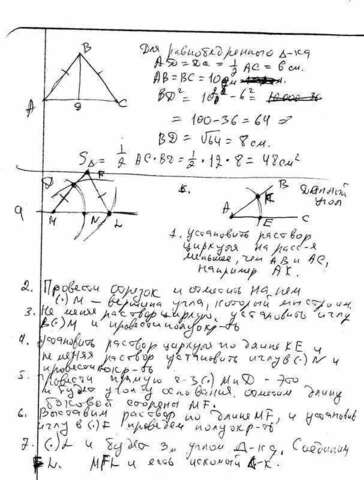 B
Для равнобедренного Δ-ка
AD = DC = 1/2 AC = 6 см.
AB = BC = 10 см
BD² = 10² - 6² =
A D C
= 100 - 36 = 64 ⇒
BD = √64 = 8 см.
S△ = 1/2 AC · BD = 1/2 · 12 · 8 = 48 см²
D F
5.
B
Данный угол
K
A E C
a M N L
1. установить раствор
циркуля на расс-е
меньшее, чем AB и AC,
например AK.
2. Провести отрезок и отметить на нем
(·) M - вершина угла, который мы строим
3. Не меняя раствор циркуля, установить иглу
в (·) M и провести полуокр-ть
4. установить раствор циркуля по длине KE и
не меняя раствор установить иглу в (·) N и
провести окр-ть
5. Провести прямую ч-з (·) M и D - это
и будет углу основания. отметим длину
боковой стороны MF.
6. Выставим раствор по длине MF, и установив
иглу в (·) F проведем полуокр-ть
7. (·) L и будет 3м углом Δ-ка, Соединим
FL. MFL и есть искомый Δ-к.